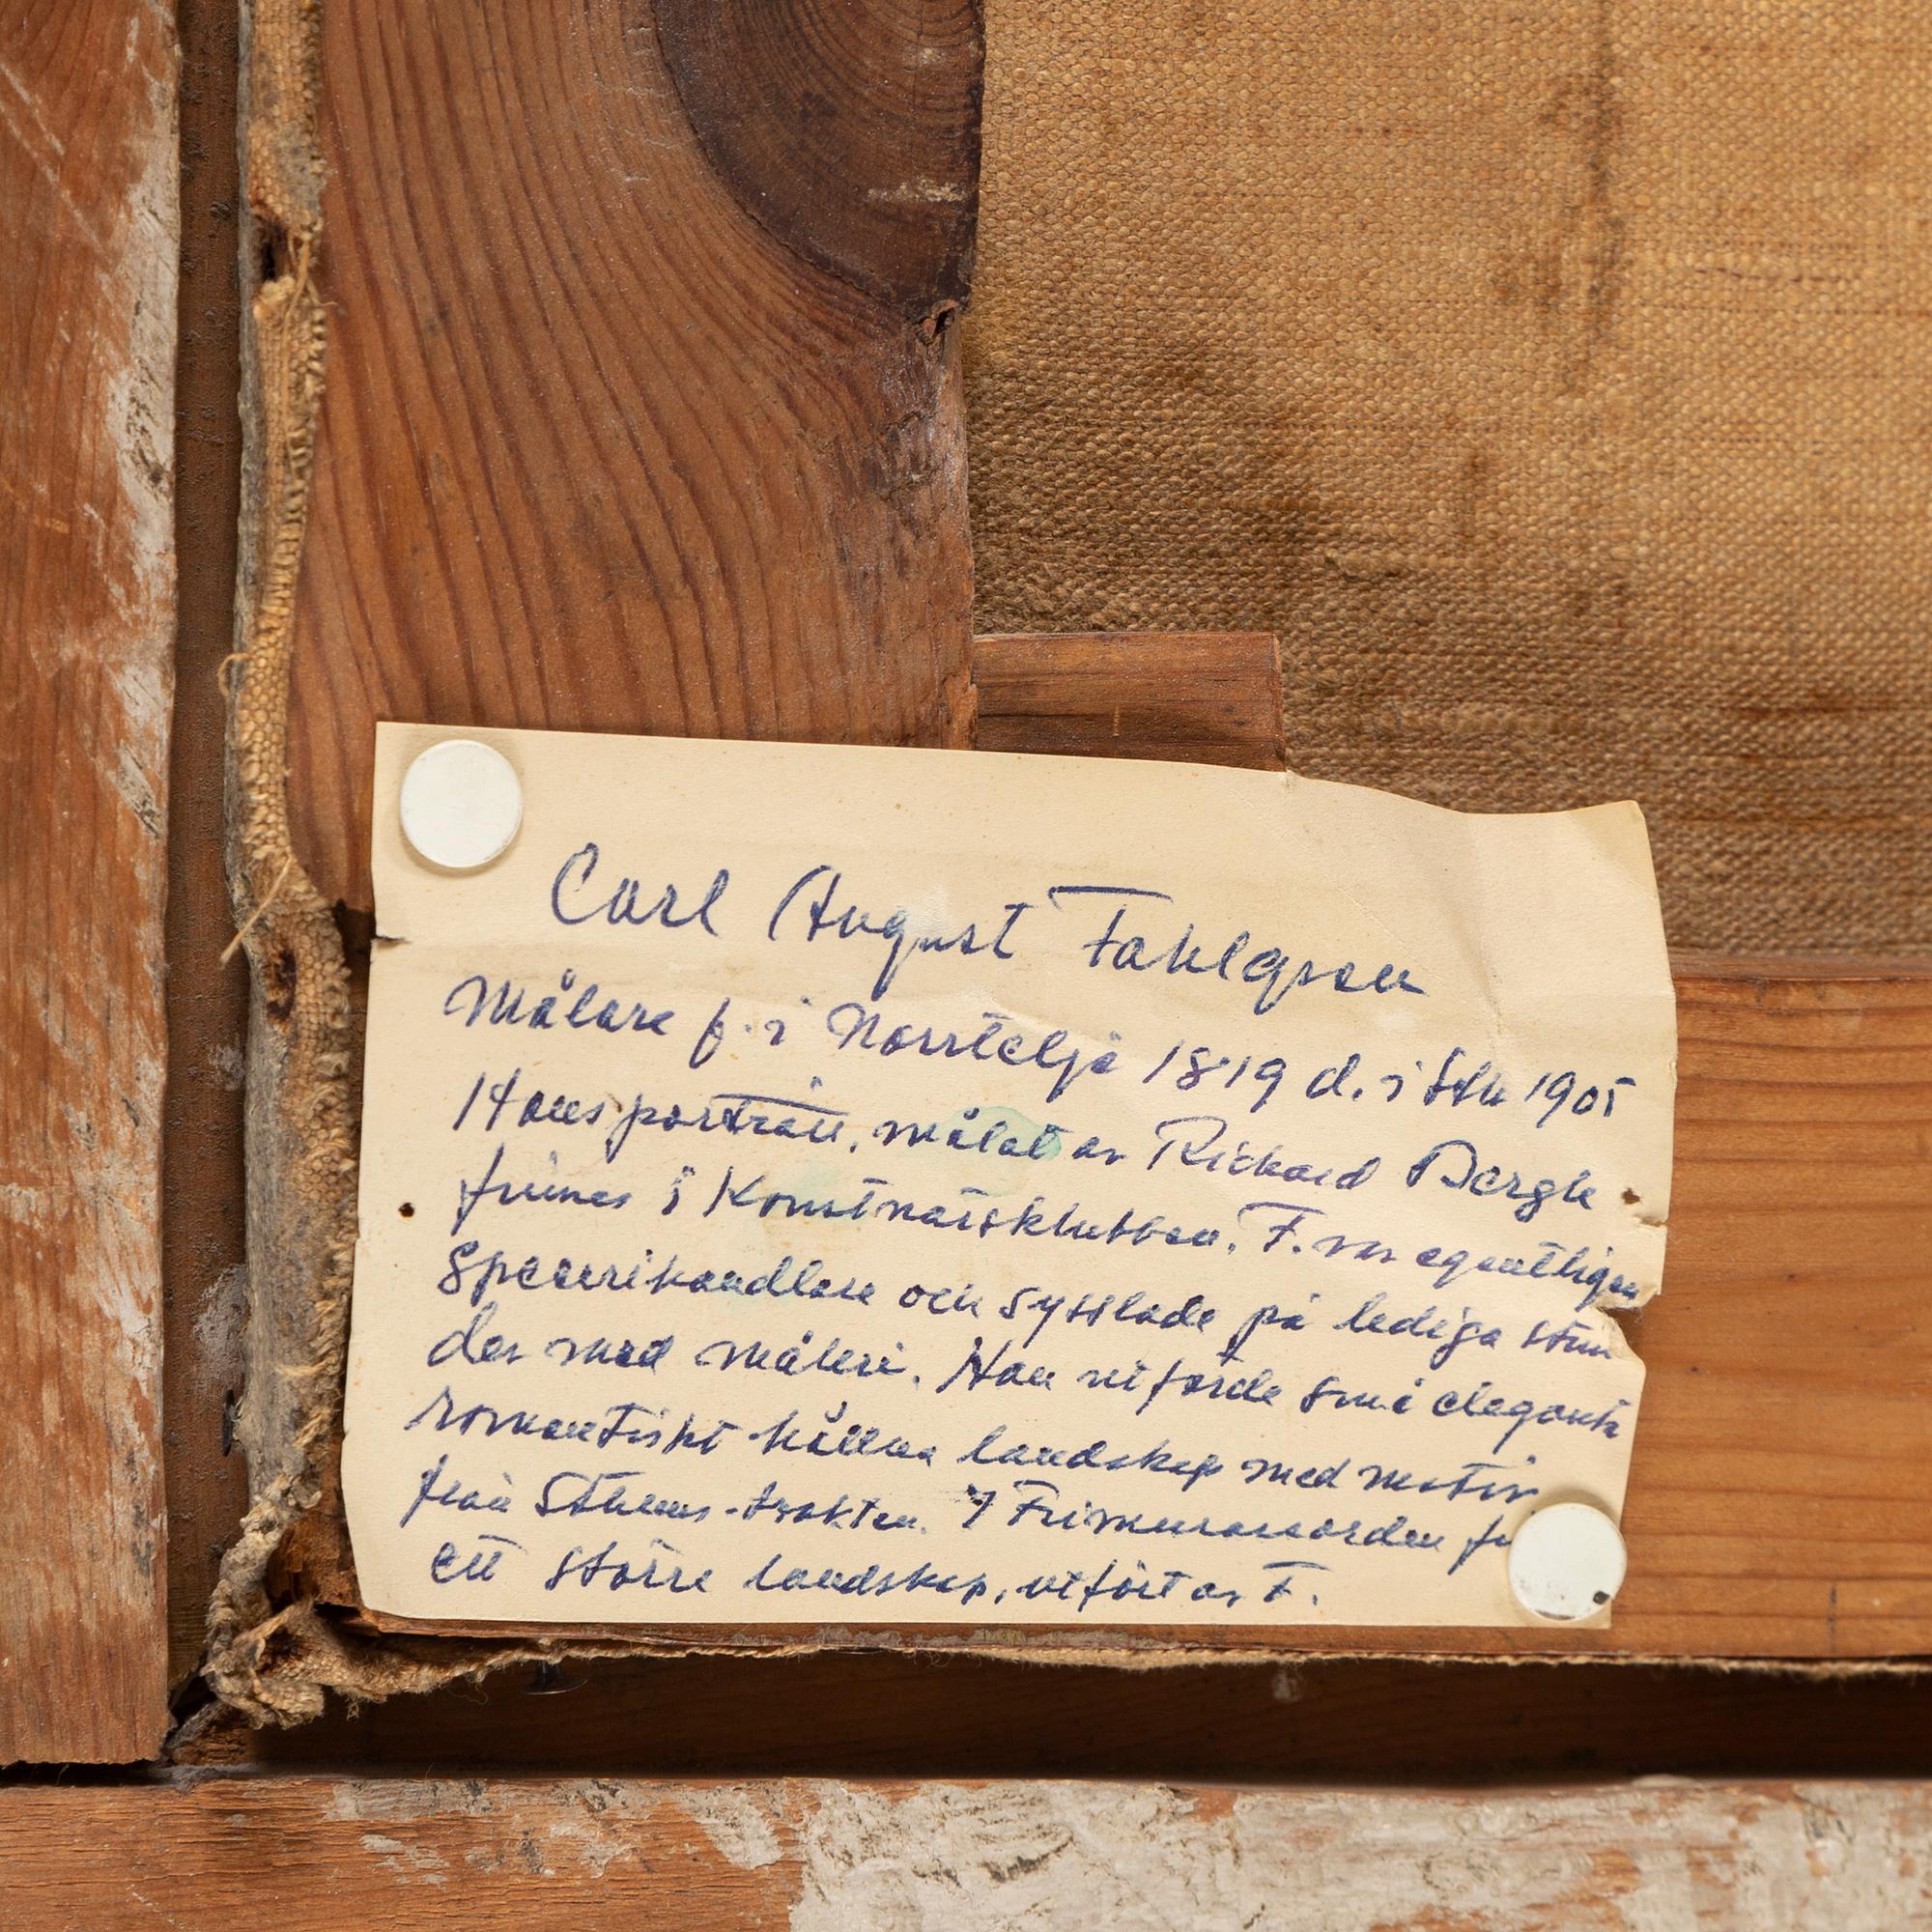 Carl August Fahlgren
Målare f. i Norrtelje 1819 d. i Sthlm 1905
Hans porträtt, målat av Richard Bergh
finnes i Konstnärsklubben. F. var egentligen
Specerihandlare och sysslade på lediga stun
der med måleri. Han utförde små eleganta
romantiskt hållna landskap med motiv
från Sthlms-trakten. I Frimurareorden
ett större landskap, utfört av F.